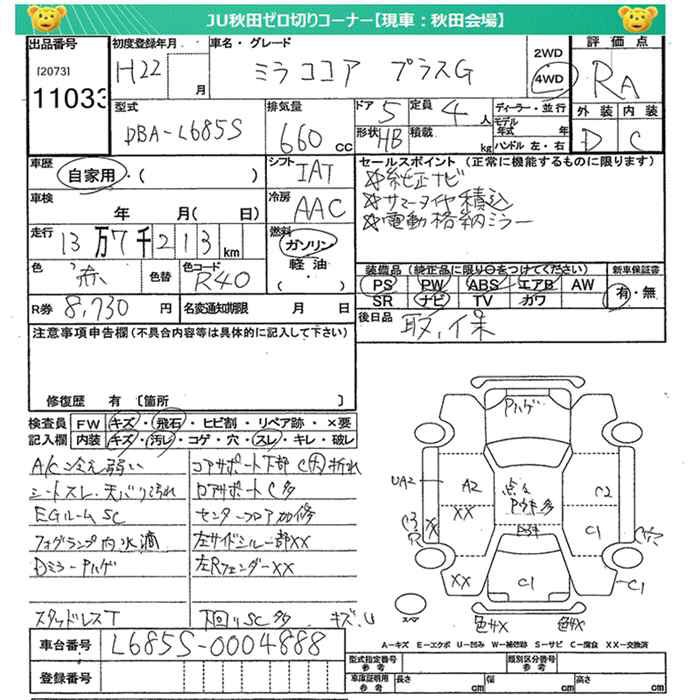 JU秋田ゼロ切りコーナー【現車：秋田会場】
出品番号 初度登録年月 車名・グレード 2WD 評価点
[2073] H22 月 ミラココア プラスG 4WD RA
11033
型式 排気量 ドア 5 定員 4 人 ディーラー・並行 外装 内装
DBA-L685S 660 cc 形状 HB 積載 kg モデル年式 年 D C
ハンドル 左・右
車歴 シフト セールスポイント（正常に機能するものに限ります）
自家用・（ ） IAT 純正ナビ
車検 冷房 サマータイヤ積込
年 月（ 日） AAC 電動格納ミラー
走行 燃料
13万7千213km ガソリン
軽油
色 赤 色替 色コード R40 装備品（純正品に限り○をつけてください） 新車保証書
PS PW ABS エアB AW 有・無
SR ナビ TV カワ
R券 8,730円 名変通知期限 月 日 後日品 取,保
注意事項申告欄（不具合内容等は具体的に記入して下さい）
修復歴 有［箇所 ］
検査員 FW キズ・飛石・ヒビ割・リペア跡・×要
記入欄 内装 キズ・汚レ・コゲ・穴・スレ・キレ・破レ
A/C冷え弱い コアサポート下部C大折れ
シートスレ.天バリ汚れ ロアサポートC多
EGルームSC センターフロア加修
フォグランプ内水滴 左サイドシル一部XX
Dミラーハゲ 左RフェンダーXX
スタッドレスT 下回りSC多 キズ.U
Aハゲ
UA2 A2 点々 C2
XX XX C1
XX C1 C1
スペア
A−キズ E−エクボ U−凹み W−補修跡 S−サビ C−腐食 XX−交換済
車台番号 L685S-0004888
登録番号
型式指定番号 参考 類別区分番号 参考
車庫証明用 参考 長さ cm 幅 cm 高さ cm